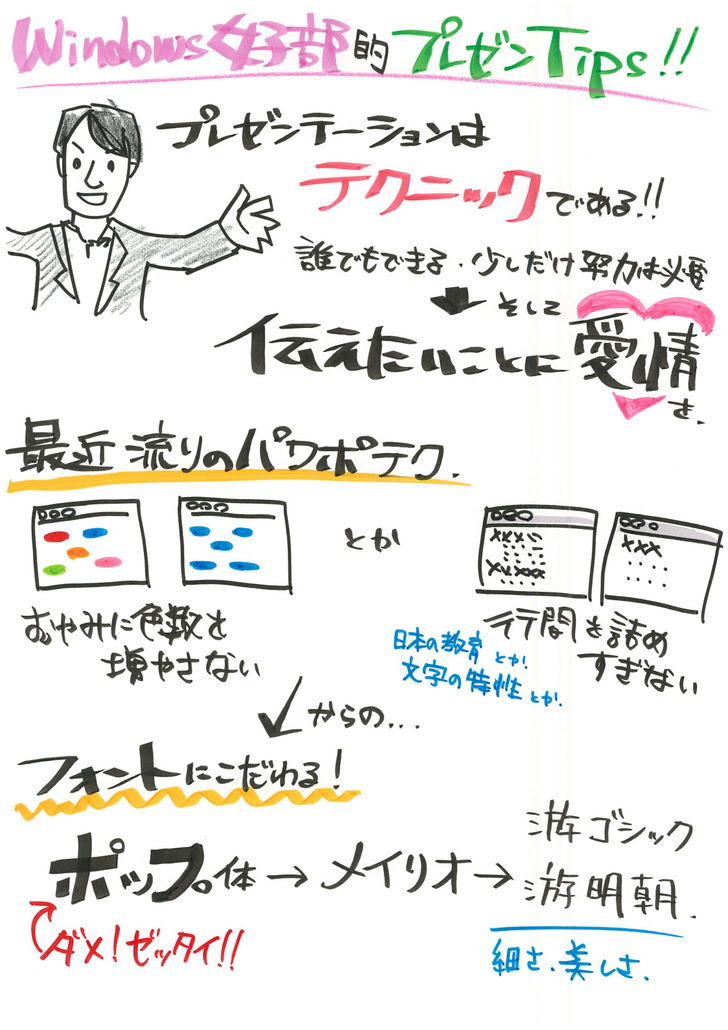 Windows女子部的プレゼンTips!!
プレゼンテーションは
テクニックである!!
誰でもできる。少しだけ努力は必要
そして
伝えたいことに愛情
を。
最近流りのパワポテク.
とか
むやみに色数を
増やさない
行間を詰め
すぎない
日本の教育とか.
文字の特性とか.
からの...
フォントにこだわる!
ポップ体→メイリオ→
游ゴシック
游明朝.
ダメ!ゼッタイ!!
細さ、美しさ.